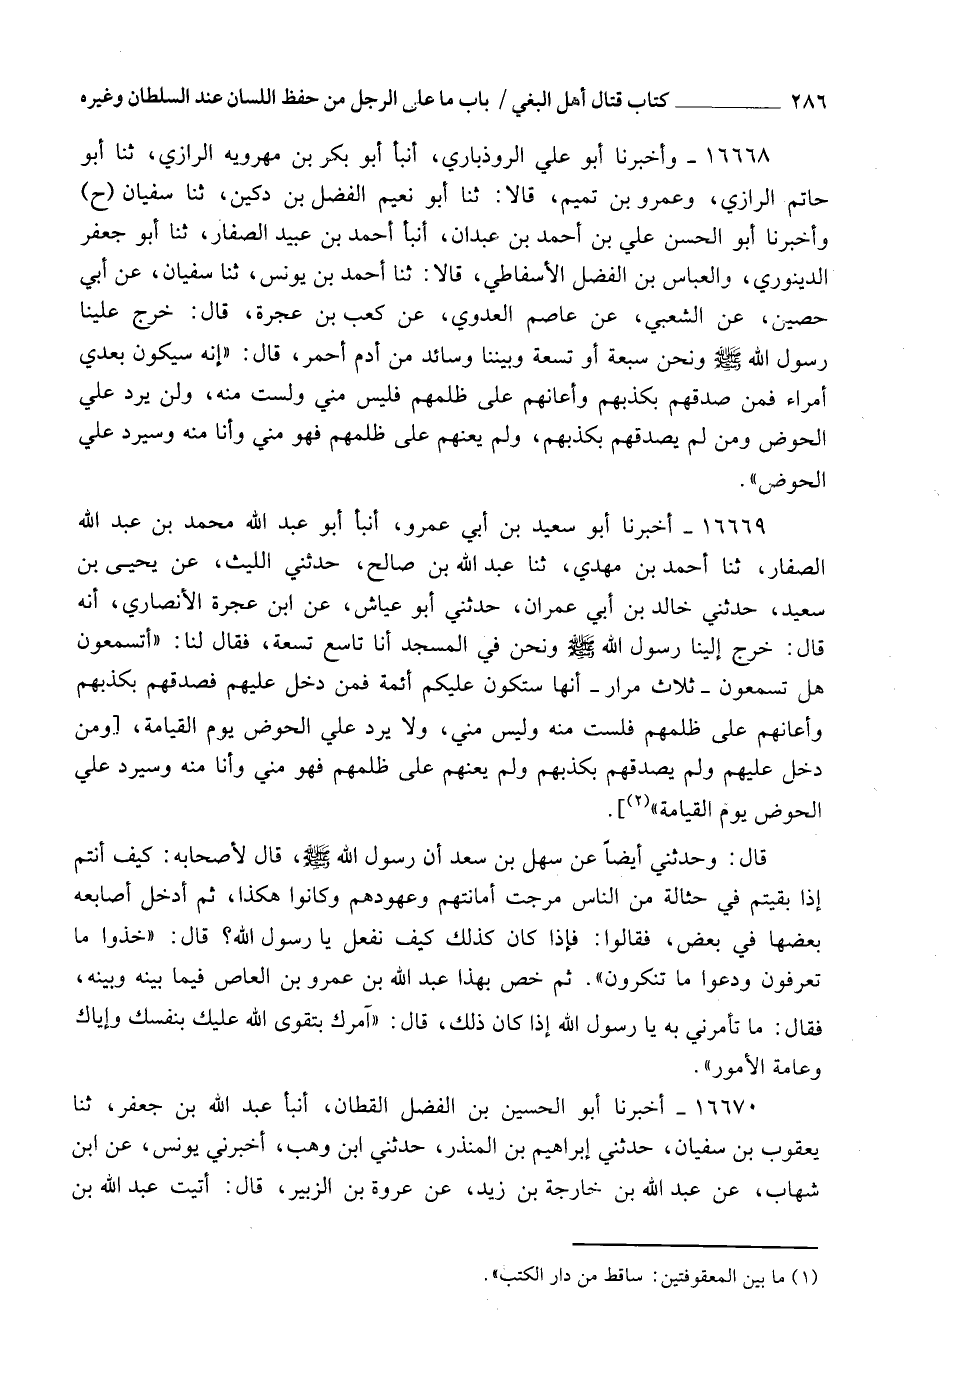 ٢٨٦ ـــــــــــ كتاب قتال أهل البغي / باب ما على الرجل من حفظ اللسان عند السلطان وغيره
١٦٦٦٨ ـ وأخبرنا أبو علي الروذباري، أنبأ أبو بكر بن مهرويه الرازي، ثنا أبو
حاتم الرازي، وعمرو بن تميم، قالا: ثنا أبو نعيم الفضل بن دكين، ثنا سفيان (ح)
وأخبرنا أبو الحسن علي بن أحمد بن عبدان، أنبأ أحمد بن عبيد الصفار، ثنا أبو جعفر
الدينوري، والعباس بن الفضل الأسفاطي، قالا: ثنا أحمد بن يونس، ثنا سفيان، عن أبي
حصين، عن الشعبي، عن عاصم العدوي، عن كعب بن عجرة، قال: خرج علينا
رسول الله ﷺ ونحن سبعة أو تسعة وبيننا وسائد من أدم أحمر، قال: «إنه سيكون بعدي
أمراء فمن صدقهم بكذبهم وأعانهم على ظلمهم فليس مني ولست منه، ولن يرد علي
الحوض ومن لم يصدقهم بكذبهم، ولم يعنهم على ظلمهم فهو مني وأنا منه وسيرد علي
الحوض».
١٦٦٦٩ ـ أخبرنا أبو سعيد بن أبي عمرو، أنبأ أبو عبد الله محمد بن عبد الله
الصفار، ثنا أحمد بن مهدي، ثنا عبد الله بن صالح، حدثني الليث، عن يحيى بن
سعيد، حدثني خالد بن أبي عمران، حدثني أبو عياش، عن ابن عجرة الأنصاري، أنه
قال: خرج إلينا رسول الله ﷺ ونحن في المسجد أنا تاسع تسعة، فقال لنا: «أتسمعون
هل تسمعون ـ ثلاث مرار ـ أنها ستكون عليكم أئمة فمن دخل عليهم فصدقهم بكذبهم
وأعانهم على ظلمهم فلست منه وليس مني، ولا يرد علي الحوض يوم القيامة، [ومن
دخل عليهم ولم يصدقهم بكذبهم ولم يعنهم على ظلمهم فهو مني وأنا منه وسيرد علي
الحوض يوم القيامة»(٢)].
قال: وحدثني أيضاً عن سهل بن سعد أن رسول الله ﷺ، قال لأصحابه: كيف أنتم
إذا بقيتم في حثالة من الناس مرجت أمانتهم وعهودهم وكانوا هكذا، ثم أدخل أصابعه
بعضها في بعض، فقالوا: فإذا كان كذلك كيف نفعل يا رسول الله؟ قال: «خذوا ما
تعرفون ودعوا ما تنكرون». ثم خص بهذا عبد الله بن عمرو بن العاص فيما بينه وبينه،
فقال: ما تأمرني به يا رسول الله إذا كان ذلك، قال: «آمرك بتقوى الله عليك بنفسك وإياك
وعامة الأمور».
١٦٦٧٠ ـ أخبرنا أبو الحسين بن الفضل القطان، أنبأ عبد الله بن جعفر، ثنا
يعقوب بن سفيان، حدثني إبراهيم بن المنذر، حدثني ابن وهب، أخبرني يونس، عن ابن
شهاب، عن عبد الله بن خارجة بن زيد، عن عروة بن الزبير، قال: أتيت عبد الله بن
(١) ما بين المعقوفتين: ساقط من دار الكتب».